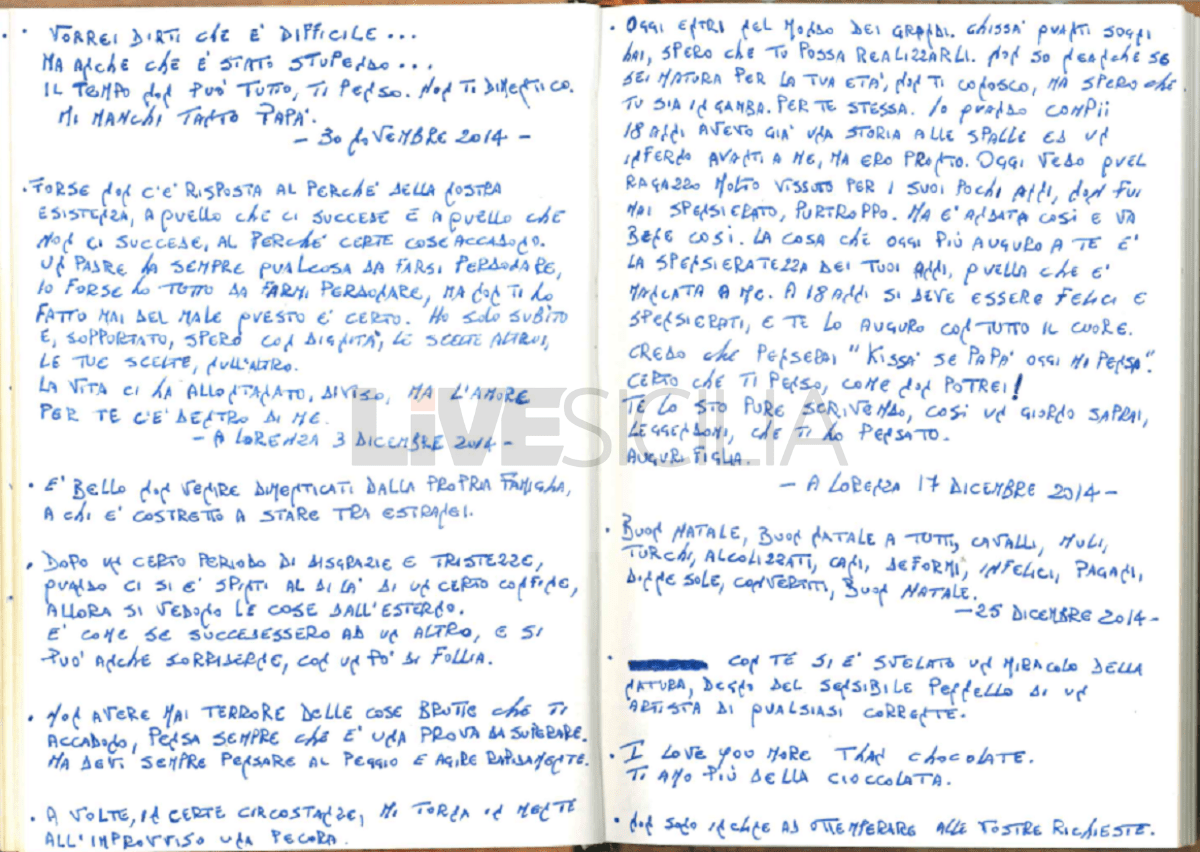 • VORREI DIRTI CHE E' DIFFICILE...
MA ANCHE CHE E' STATO STUPENDO...
IL TEMPO NON PUO' TUTTO, TI PENSO. NON TI DIMENTICO.
MI MANCHI TANTO PAPA'.
- 30 NOVEMBRE 2014 -
• FORSE NON C'E' RISPOSTA AL PERCHE' DELLA NOSTRA
ESISTENZA, A QUELLO CHE CI SUCCEDE E A QUELLO CHE
NON CI SUCCEDE, AL PERCHE' CERTE COSE ACCADONO.
UN PADRE HA SEMPRE QUALCOSA DA FARSI PERDONARE,
IO FORSE HO TUTTO DA FARMI PERDONARE, MA NON TI HO
FATTO MAI DEL MALE QUESTO E' CERTO. HO SOLO SUBITO
E, SOPPORTATO, SPERO CON DIGNITA', LE SCELTE ALTRUI,
LE TUE SCELTE, NULL'ALTRO.
LA VITA CI HA ALLONTANATO, DIVISO, MA L'AMORE
PER TE C'E' DENTRO DI ME.
- A LORENZA 3 DICEMBRE 2014 -
• E' BELLO NON VENIRE DIMENTICATI DALLA PROPRIA FAMIGLIA,
A CHI E' COSTRETTO A STARE TRA ESTRANEI.
• DOPO UN CERTO PERIODO DI DISGRAZIE E TRISTEZZE,
QUANDO CI SI E' SPINTI AL DI LA' DI UN CERTO CONFINE,
ALLORA SI VEDONO LE COSE DALL'ESTERNO.
E' COME SE SUCCEDESSERO AD UN ALTRO, E SI
PUO' ANCHE SORRIDERNE, CON UN PO' DI FOLLIA.
• NON AVERE MAI TERRORE DELLE COSE BRUTTE CHE TI
ACCADONO, PENSA SEMPRE CHE E' UNA PROVA DA SUPERARE.
MA DEVI SEMPRE PENSARE AL PEGGIO E AGIRE RAPIDAMENTE.
• A VOLTE, IN CERTE CIRCOSTANZE, MI TORNA IN MENTE
ALL'IMPROVVISO UNA PECORA.
• OGGI ENTRI NEL MONDO DEI GRANDI. CHISSA' QUANTI SOGNI
HAI, SPERO CHE TU POSSA REALIZZARLI. NON SO NEANCHE SE
SEI MATURA PER LA TUA ETA', NON TI CONOSCO, MA SPERO CHE
TU SIA IN GAMBA. PER TE STESSA. IO QUANDO COMPII
18 ANNI AVEVO GIA' UNA STORIA ALLE SPALLE ED UN
INFERNO AVANTI A ME, MA ERO PRONTO. OGGI VEDO QUEL
RAGAZZO MOLTO VISSUTO PER I SUOI POCHI ANNI, NON FUI
MAI SPENSIERATO, PURTROPPO. MA E' ANDATA COSI' E VA
BENE COSI'. LA COSA CHE OGGI PIÙ AUGURO A TE E'
LA SPENSIERATEZZA DEI TUOI ANNI, QUELLA CHE E'
MANCATA A ME. A 18 ANNI SI DEVE ESSERE FELICI E
SPENSIERATI, E TE LO AUGURO CON TUTTO IL CUORE.
CREDO CHE PENSERAI "KISSA' SE PAPA' OGGI MI PENSA".
CERTO CHE TI PENSO, COME NON POTREI!
TE LO STO PURE SCRIVENDO, COSI UN GIORNO SAPRAI,
LEGGENDOMI, CHE TI HO PENSATO.
AUGURI FIGLIA.
- A LORENZA 17 DICEMBRE 2014 -
• BUON NATALE, BUON NATALE A TUTTI, CAVALLI, MULI,
TURCHI, ALCOLIZZATI, CANI, DEFORMI, INFELICI, PAGANI,
DONNE SOLE, CONVERTITI, BUON NATALE.
- 25 DICEMBRE 2014 -
• CON TE SI E' SVELATO UN MIRACOLO DELLA
NATURA, DEGNO DEL SENSIBILE PENNELLO DI UN
ARTISTA DI QUALSIASI CORRENTE.
• I LOVE YOU MORE THAN CHOCOLATE.
TI AMO PIÙ DELLA CIOCCOLATA.
• NON SONO INCLINE AD OTTEMPERARE ALLE VOSTRE RICHIESTE.
LIVESICILIA